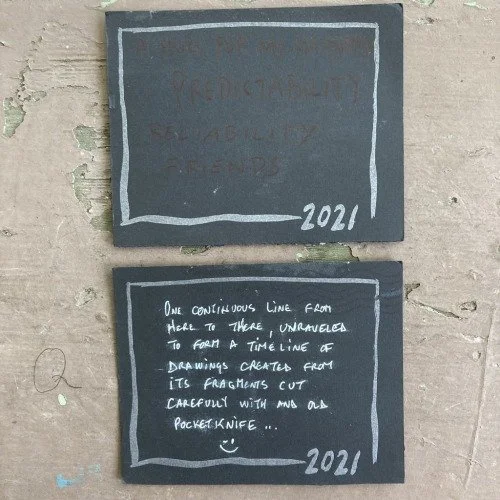 A HUG FOR MY
PREDICTABILITY
RELIABILITY
FRIENDS
2021
ONE CONTINUOUS LINE FROM
HERE TO THERE, UNRAVELED
TO FORM A TIMELINE OF
DRAWINGS CREATED FROM
ITS FRAGMENTS CUT
CAREFULLY WITH AND OLD
POCKETKNIFE ...
2021